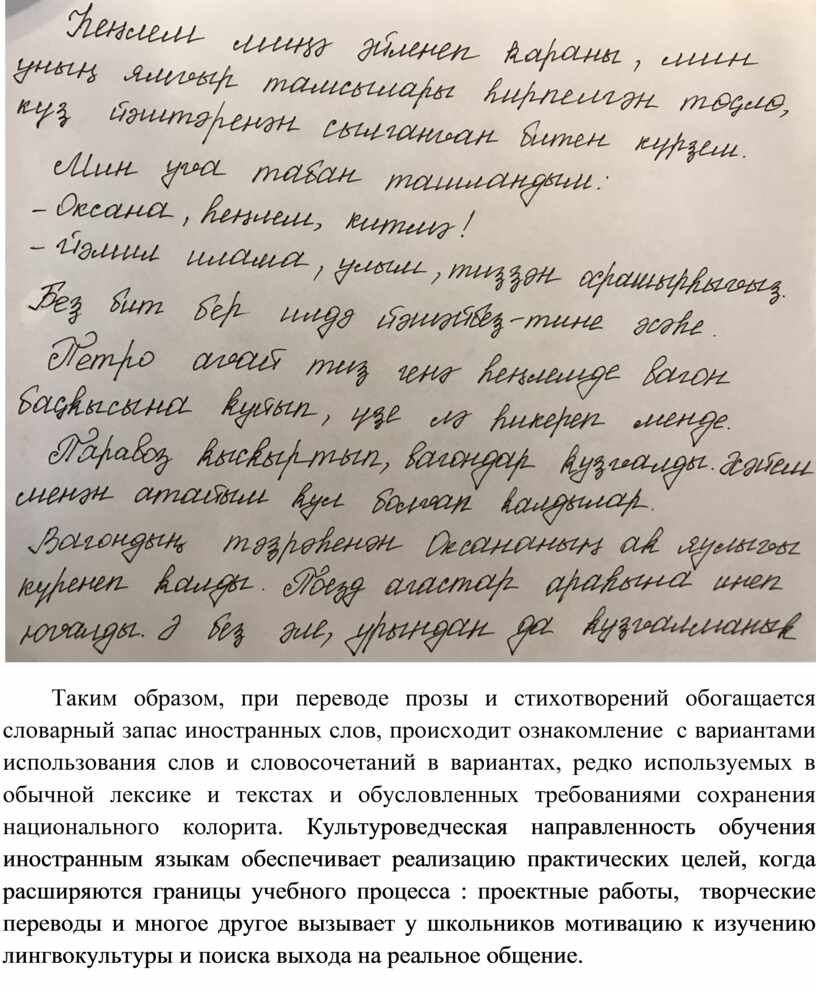 Һеңлем миңә әйләнеп ҡараны, мин
уның ямғыр тамсылары һирпелгән тоҫлө,
күҙ йәштәренән сыланған битен күрҙем.
Мин уға табан ташландым:
– Оксана, һеңлем, китмә!
– Йәмил илама, улым, тиҙҙән осрашырһығыҙ.
Беҙ бит бер илдә йәшәйбеҙ – тине әсәһе.
Петро ағай тиҙ генә һеңлемде вагон
баҫҡысына ҡуйып, үҙе лә һикереп менде.
Паравоз ҡысҡыртып, вагондар ҡуҙғалды. Әсәйем
менән атайым ҡул болғап ҡалдылар.
Вагондың тәҙрәһенән Оксананың аҡ яулығы
күренеп ҡалды. Поезд ағастар араһына инеп
юғалды. Ә беҙ әле, урындан да ҡуҙғалманыҡ
Таким образом, при переводе прозы и стихотворений обогащается
словарный запас иностранных слов, происходит ознакомление с вариантами
использования слов и словосочетаний в вариантах, редко используемых в
обычной лексике и текстах и обусловленных требованиями сохранения
национального колорита. Культуроведческая направленность обучения
иностранным языкам обеспечивает реализацию практических целей, когда
расширяются границы учебного процесса : проектные работы, творческие
переводы и многое другое вызывает у школьников мотивацию к изучению
лингвокультуры и поиска выхода на реальное общение.